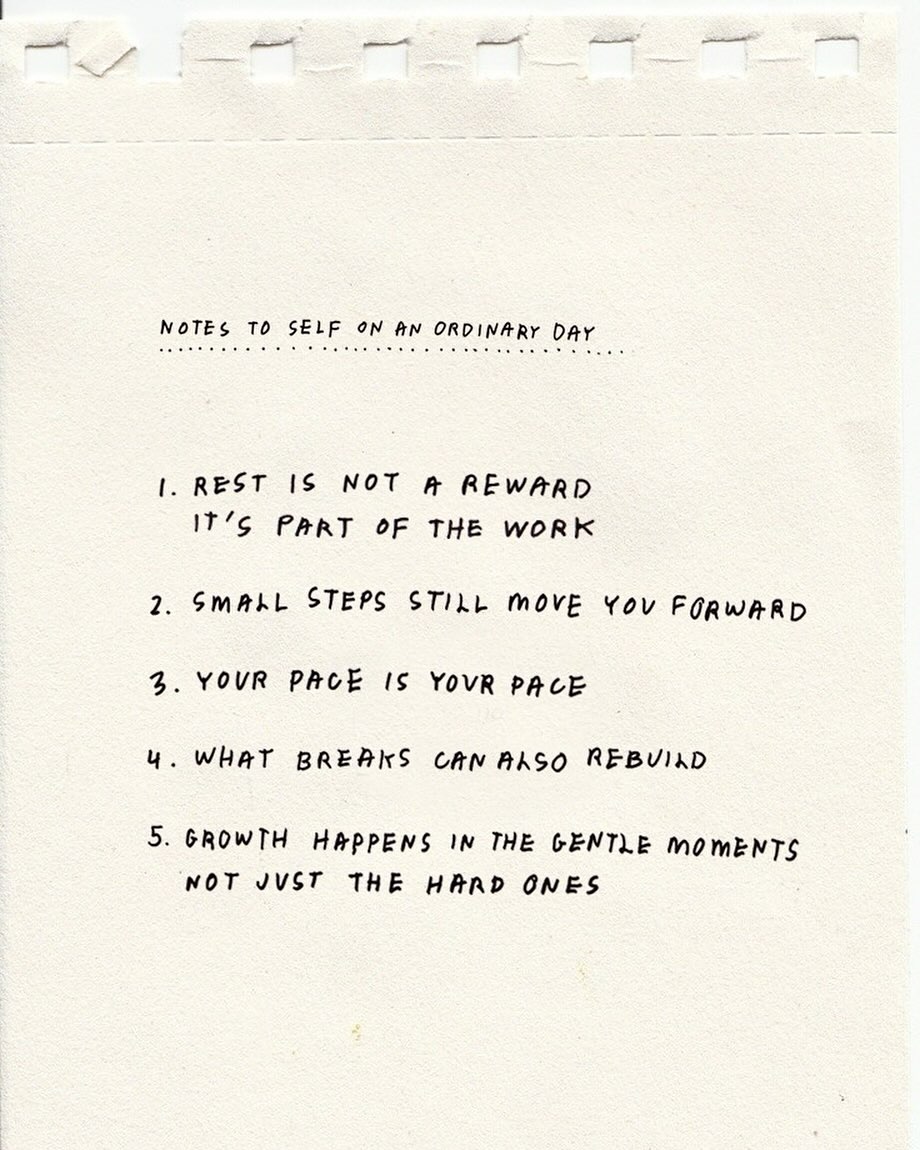 NOTES TO SELF ON AN ORDINARY DAY
1. REST IS NOT A REWARD
IT'S PART OF THE WORK
2. SMALL STEPS STILL MOVE YOU FORWARD
3. YOUR PACE IS YOUR PACE
4. WHAT BREAKS CAN ALSO REBUILD
5. GROWTH HAPPENS IN THE GENTLE MOMENTS
NOT JUST THE HARD ONES